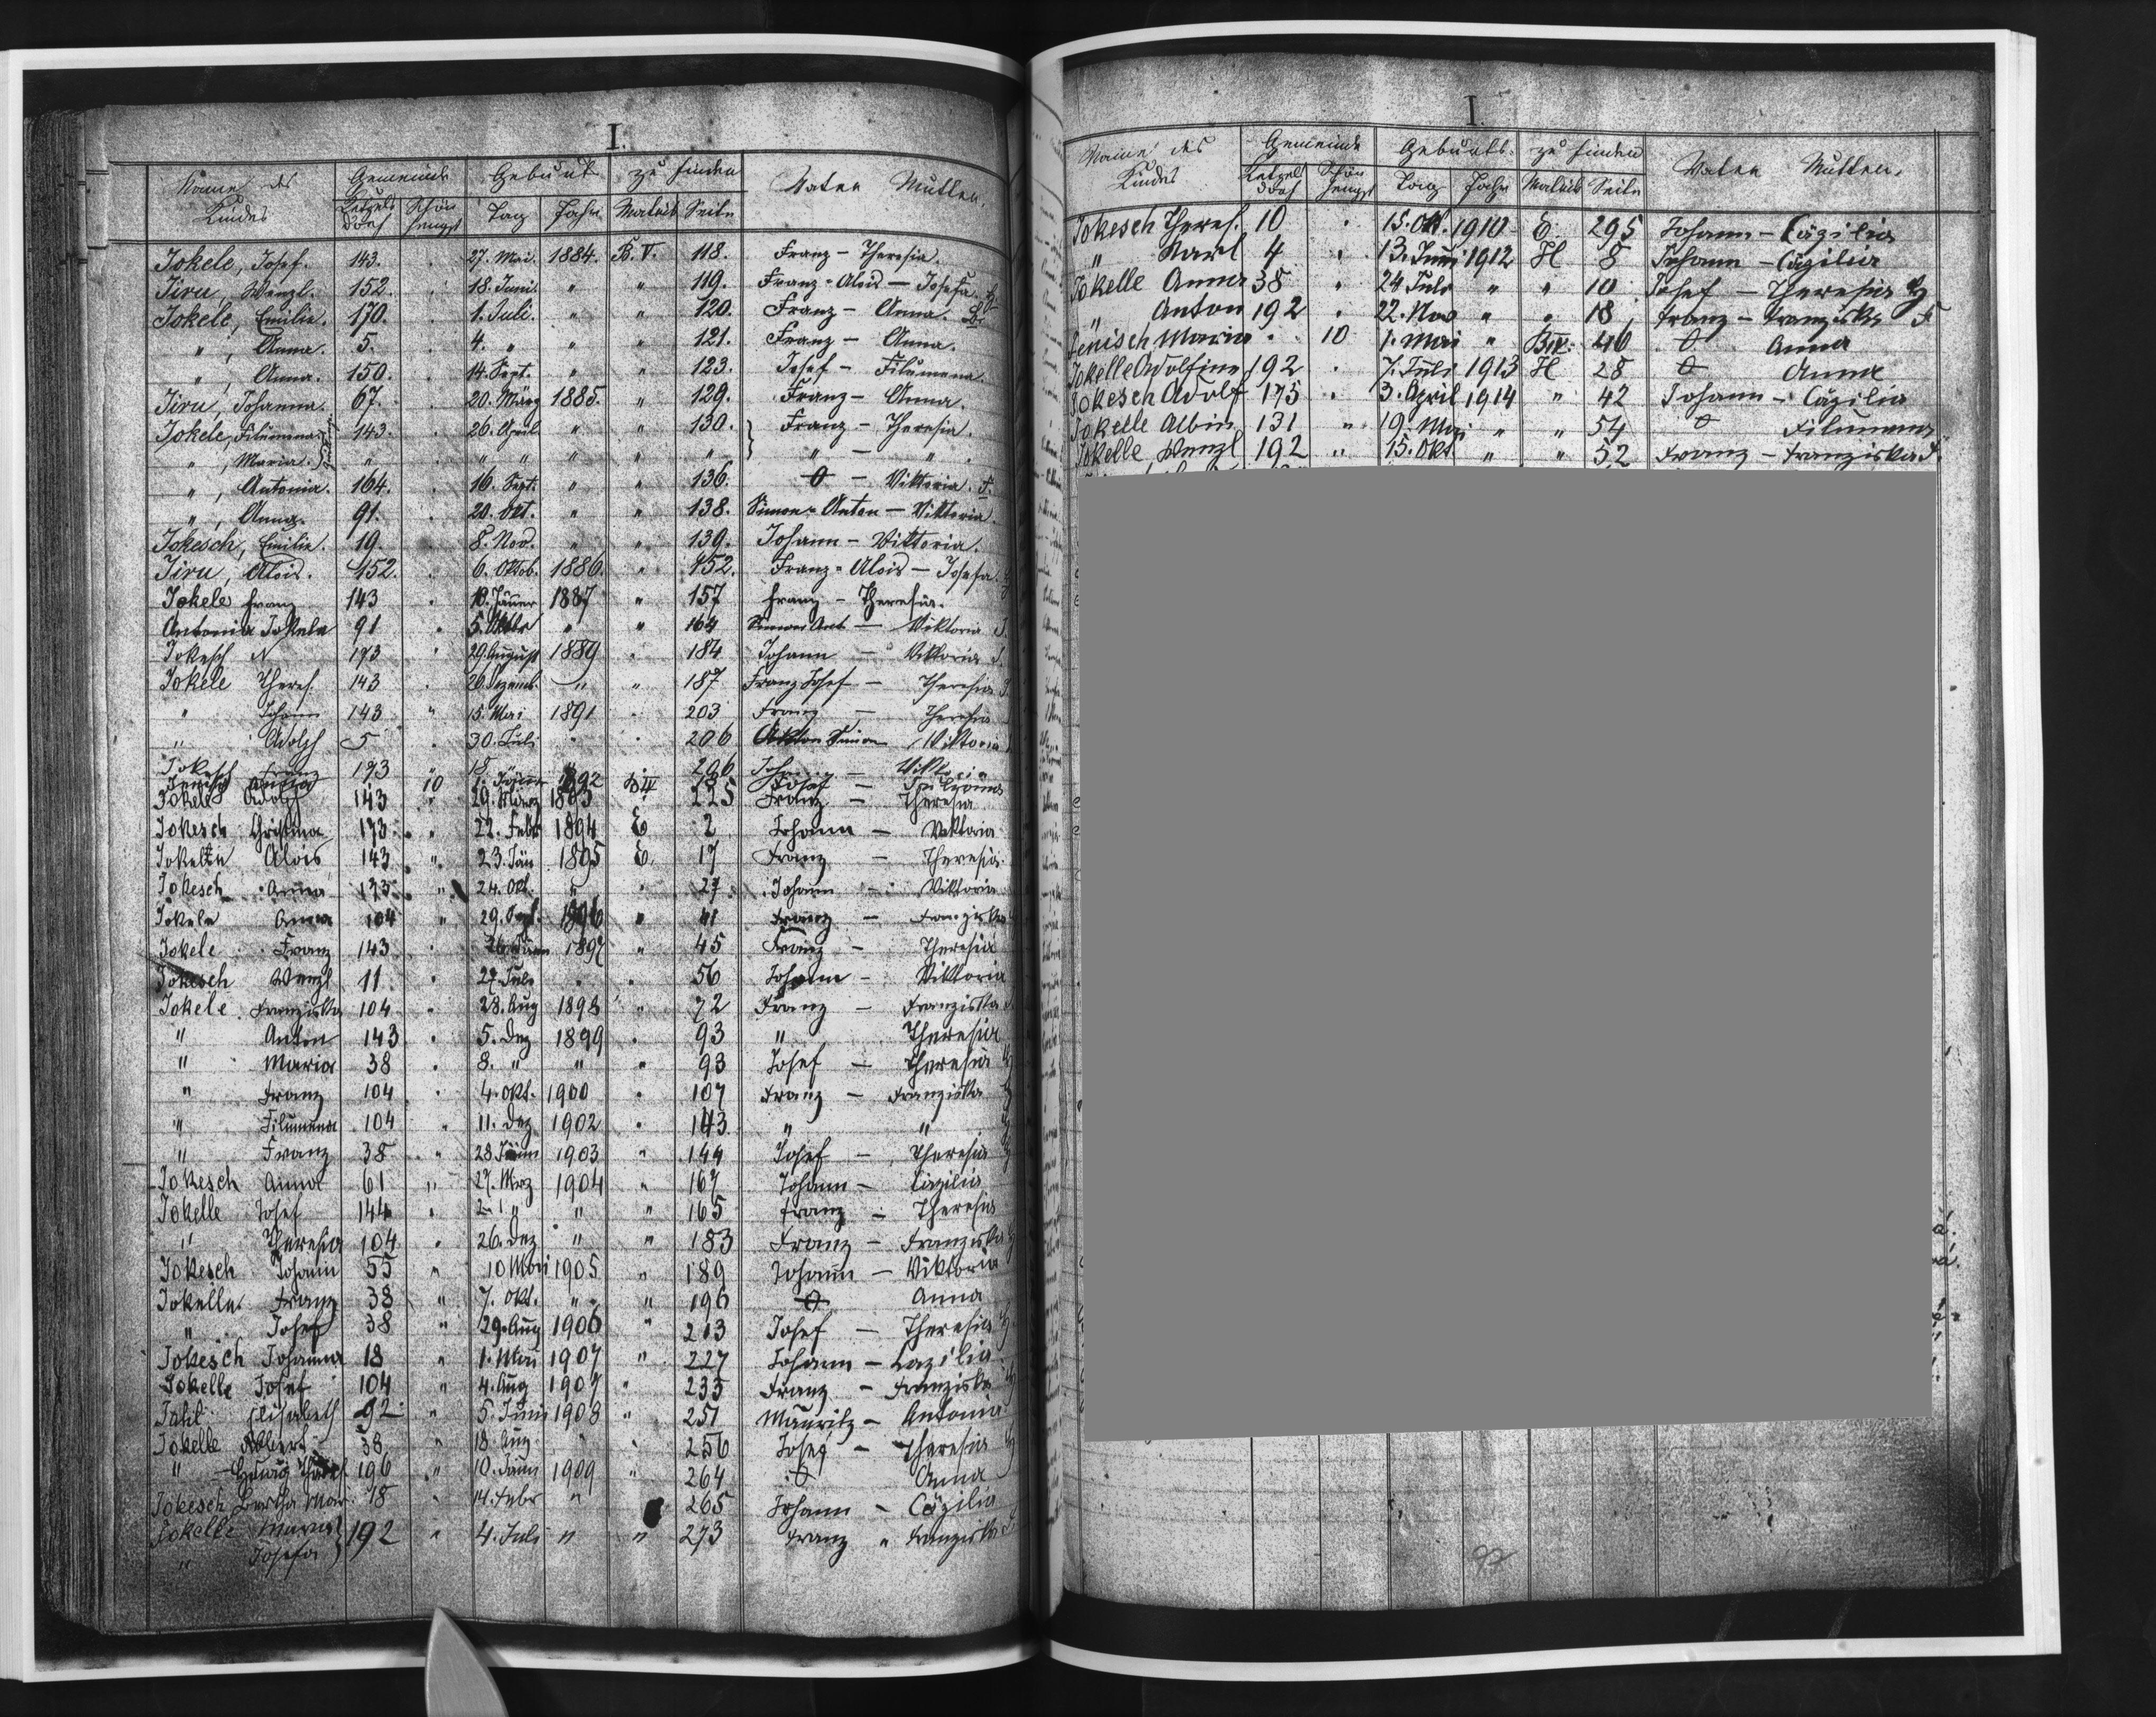 I.
Name des Kindes Gemeinde Geburt zu finden Vater Mutter.
Ketzelsdorf Schönhengst Tag Jahr Matrik Seite
Jokele, Josef. 143. 27. Mai. 1884. B. V. 118. Franz - Theresia.
Jiru, Wenzl. 152. 18. Juni. " " 119. Franz-Alois - Josefa.
Jokele, Emilie. 170. 1. Juli. " " 120. Franz - Anna.
", Anna. 5. 4. " " " 121. Franz - Anna.
", Anna. 150. 14. Sept. " " 123. Josef - Filumena.
Jiru, Johanna. 67. 20. März 1885. " 129. Franz - Anna.
Jokele, Filumena. 143. 26. April " " 130. Franz - Theresia.
", Maria. " " " " " " " - "
", Antonia. 164. 16. Sept. " " 136. O - Viktoria. F.
", Anna. 91. 20. Okt. " " 138. Simon-Anton - Viktoria.
Jokesch, Emilie. 19. 8. Nov. " " 139. Johann - Viktoria.
Jiru, Alois. 152. 6. Oktob. 1886. " 152. Franz-Alois - Josefa.
Jokele Franz 143 10. Jäner 1887 " 157 Franz - Theresia.
Antonia Jokele 91 5. Oktbr " " 164 Simon Ant - Viktoria
Jokesch N 173 29. August 1889 " 184 Johann - Viktoria
Jokele Theres. 143 26. Dezemb. " " 187 Franz Josef - Theresia
" Johann 143 " 15. Mai 1891 203 Franz - Theresia
" Adolph 5 30. Juli 206 Anton Simon Viktoria
Jokesch Franz 173 18 206 Johann - Viktoria
Jenisch 10 1. Jänner 1892 BIV Josef
Jokele Adolf 143 29. März 1893 225 Franz - Theresia
Jokesch Christina 173 " 22. Febr 1894 E 2 Johann - Viktoria
Jokele Alois 143 " 23. Jän 1895 E. 17 Franz - Theresia
Jokesch Anna 173 " 24. Okt. " 27 Johann - Viktoria
Jokele Anna 104 " 29. 1896 " 41 Franz - Franziska
Jokele Franz 143 1897 " 45 Franz - Theresia
Jokesch Wenzl 11 27. Juli 56 Johann - Viktoria
Jokele Franziska 104 28. Aug 1898 " 72 Franz - Franziska
" Anton 143 5. Dez 1899 93 " Theresia
" Maria 38 8. " " " 93 Josef - Theresia
" Franz 104 4. Okt. 1900 107 Franz - Franziska
" Filumena 104 11. Dez 1902 143 " "
" Franz 38 " 28 Jänn 1903 " 144 Josef - Theresia
Jokesch Anna 61 " 27. Mrz 1904 " 167 Johann - Cäzilia
Jokelle Josef 144 " " " 165 Franz - Theresia
" Theresia 104 26. Dez " " 183 Franz - Franziska
Jokesch Johann 55 " 10 Mai 1905 " 189 Johann - Viktoria
Jokelle Franz 38 " 7. Okt. " " 196 O Anna
" Josef 38 " 29. Aug 1906 " 213 Josef - Theresia
Jokesch Johanna 18 " 1. Mai 1907 " 227 Johann - Cäzilia
Jokelle Josef 104 " 4. Aug 1907 " 235 Franz - Franziska
Jahl Elisabeth 92 " 5. Juni 1908 " 251 Mauritz - Antonia
Jokelle Albert 38 18 Aug 256 Josef - Theresia
" - Hedwig 196 " 10. Jänn 1909 " 264 O Anna
Jokesch Bertha Mar. 18 " 14. Febr " 265 Johann - Cäzilia
Jokelle Maria } 192 " 4. Juli " " 273 Franz " Franziska
" Josefa }
I.
Name des Kindes Gemeinde Geburts- zu finden Vater Mutter.
Ketzelsdorf Schönhengst Tag Jahr Matrik Seite
Jokesch Theres. 10 15. Okt. 1910 E. 295 Johann - Cäzilia
" Karl 4 " 13. Juni 1912 H 8 Johann - Cäzilia
Jokelle Anna 38 " 24 Juli " " 10 Josef - Theresia
" Anton 192 " 22. Nov " " 18 Franz - Franziska F
Jenisch Maria 10 1. Mai " BIV. 46 O Anna
Jokelle Adolfine 192 7. Juli 1913 H 28 O Anna
Jokesch Adolf 175 3. April 1914 " 42 Johann - Cäzilia
Jokelle Albin 131 " 19. Mai " " 54 O Filumena
Jokelle Wenzl 192 " 15. Okt " " 52 Franz - Franziska F.